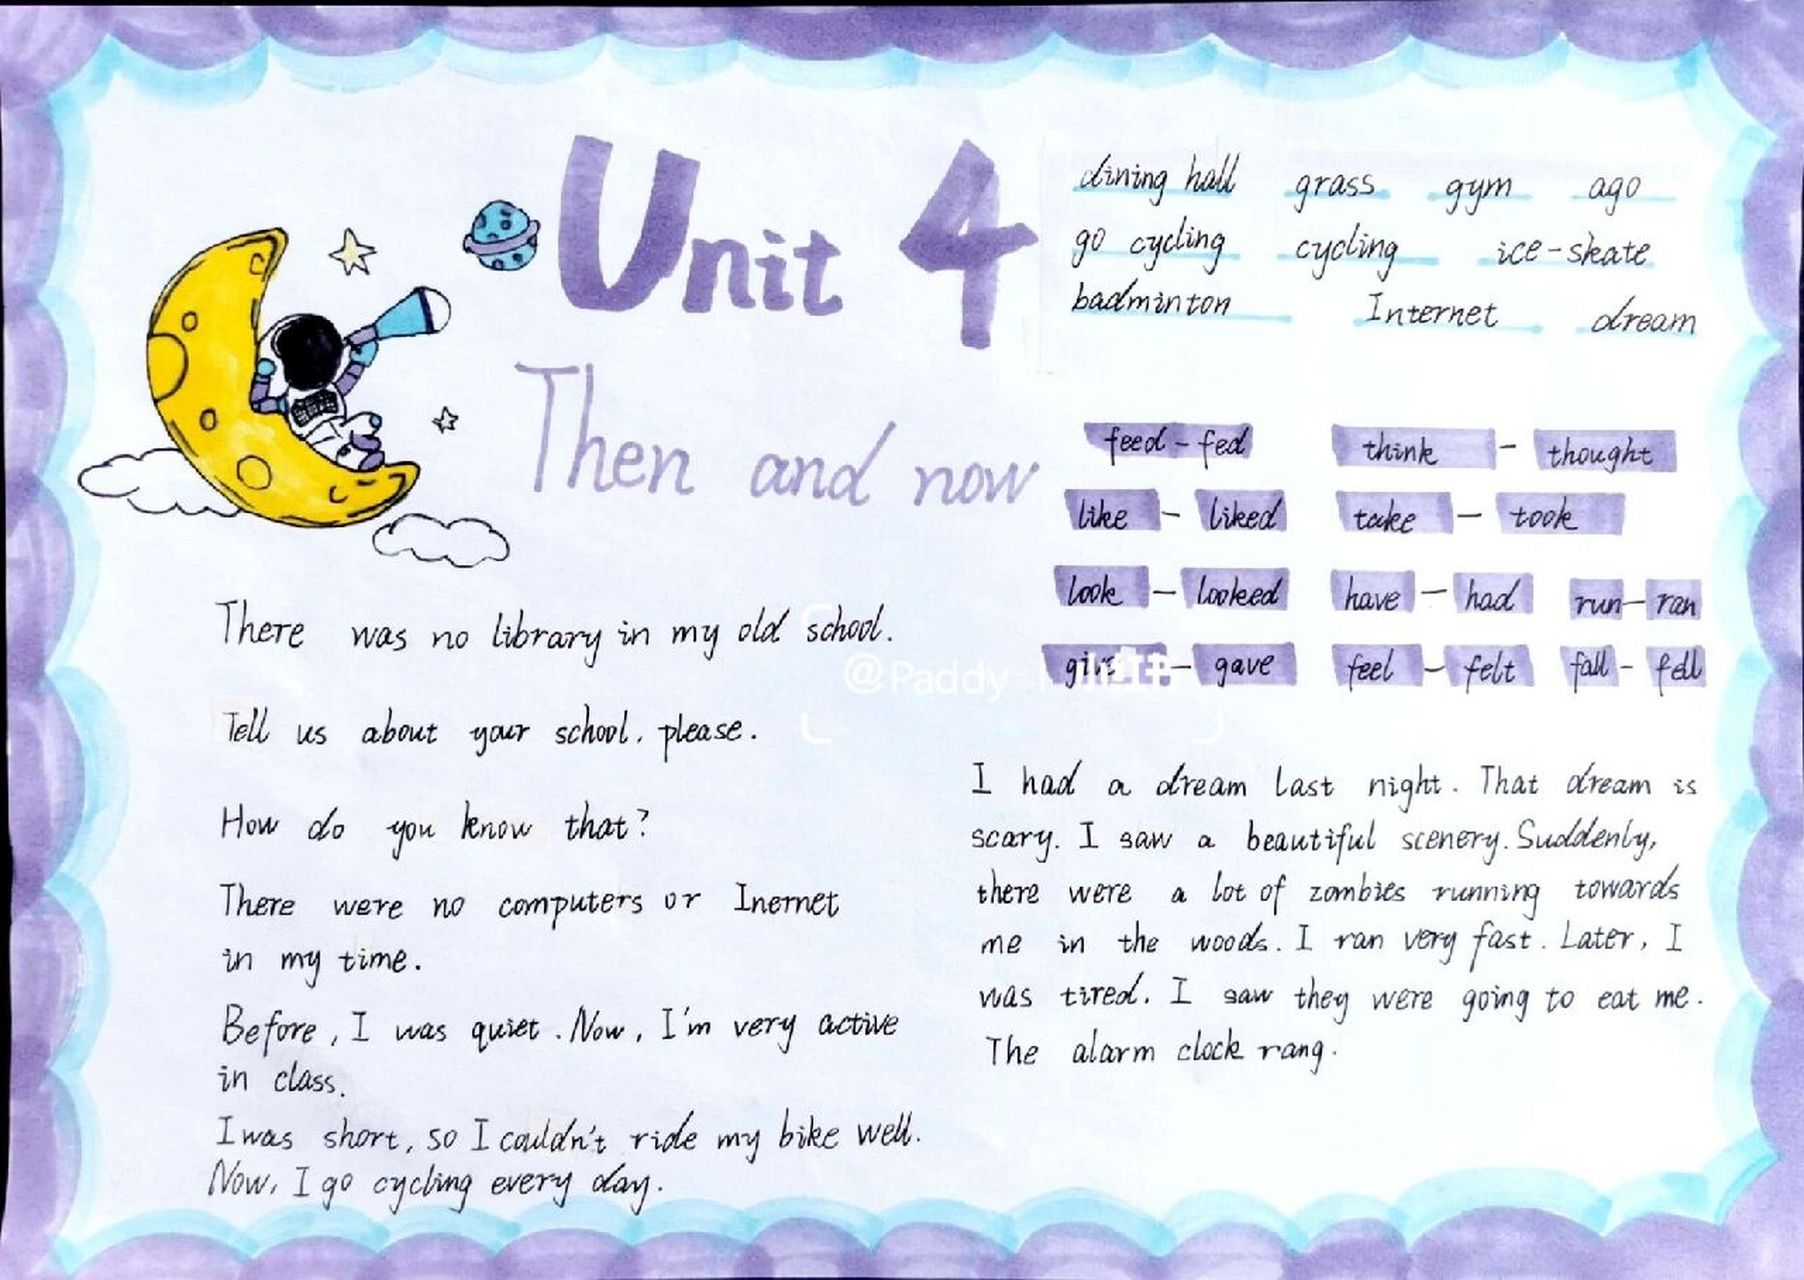 Unit 4
Then and now
dining hall grass gym ago
go cycling cycling ice-skate
badminton Internet dream
feed - fed think - thought
like - liked take - took
look - looked have - had run - ran
give - gave feel - felt fall - fell
@Paddy
There was no library in my old school.
Tell us about your school, please.
How do you know that?
There were no computers or Inernet
in my time.
Before, I was quiet. Now, I'm very active
in class.
I was short, so I couldn't ride my bike well.
Now, I go cycling every day.
I had a dream last night. That dream is
scary. I saw a beautiful scenery. Suddenly,
there were a lot of zombies running towards
me in the woods. I ran very fast. Later, I
was tired. I saw they were going to eat me.
The alarm clock rang.